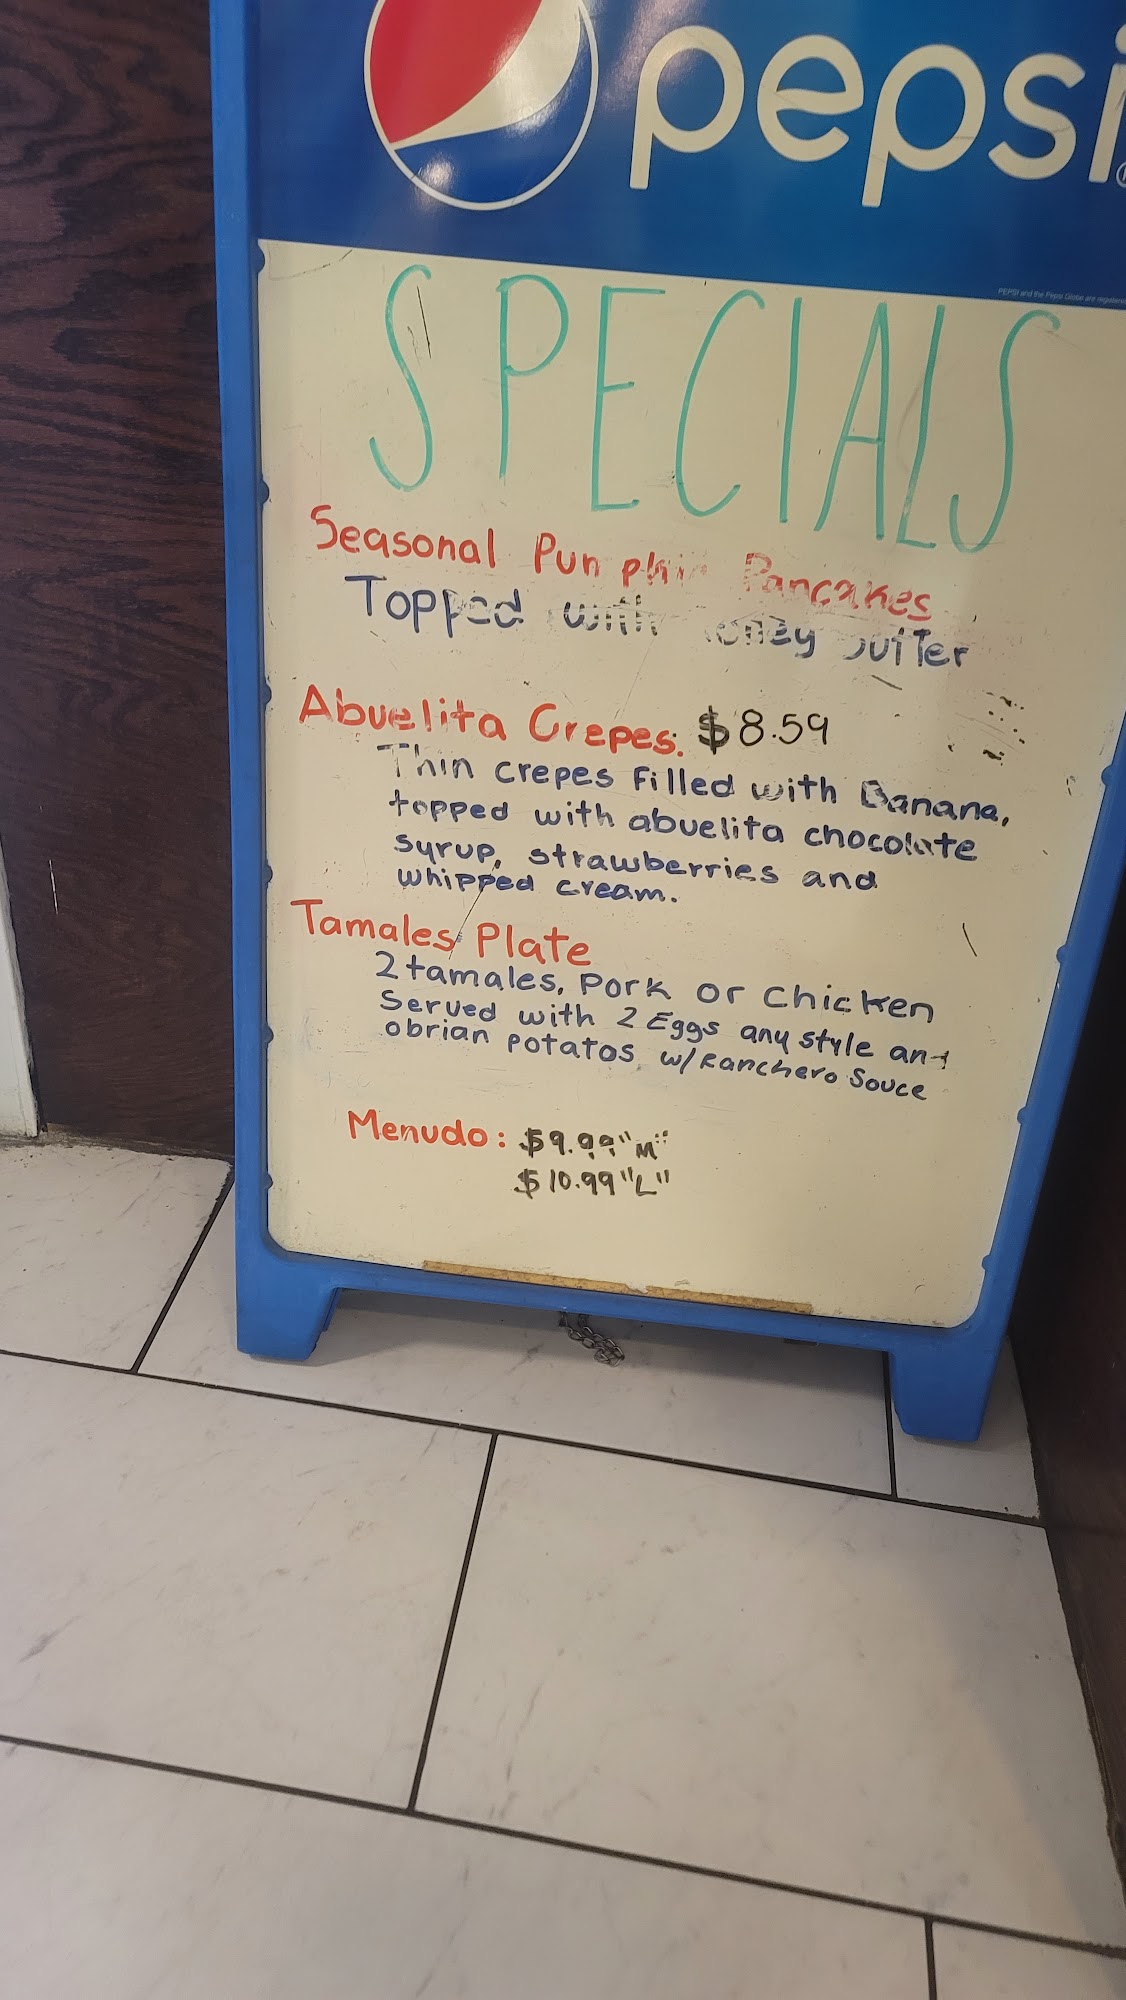 pepsi
PEPSI and the Pepsi Globe are registered
SPECIALS
Seasonal Pumpkin Pancakes
Topped with honey butter
Abuelita Crepes: $8.59
Thin crepes filled with Banana,
topped with abuelita chocolate
syrup, strawberries and
whipped cream.
Tamales Plate
2 tamales, Pork or Chicken
Served with 2 Eggs any style and
obrian potatos w/Ranchero Souce
Menudo: $9.99 "M"
$10.99 "L"